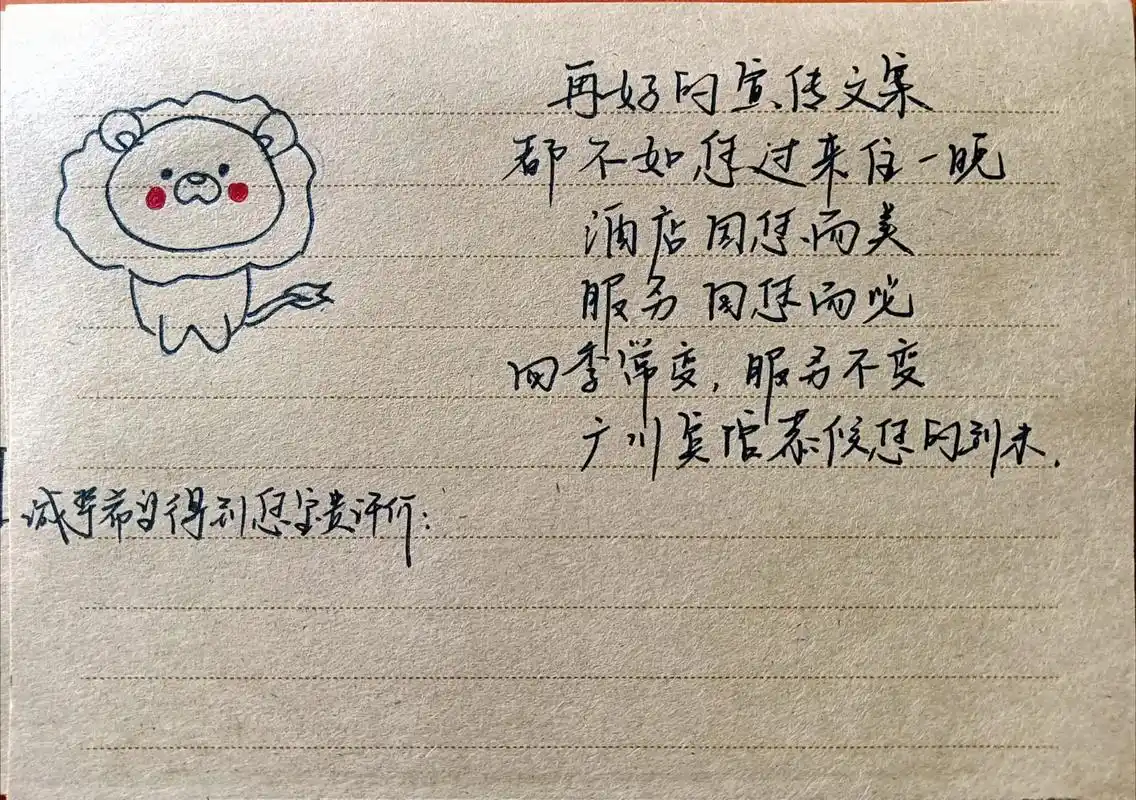 再好的宣传文案
都不如您过来住一晚
酒店因您而美
服务因您而悦
四季常变，服务不变
广川宾馆恭候您的到来.
诚挚希望得到您宝贵评价：